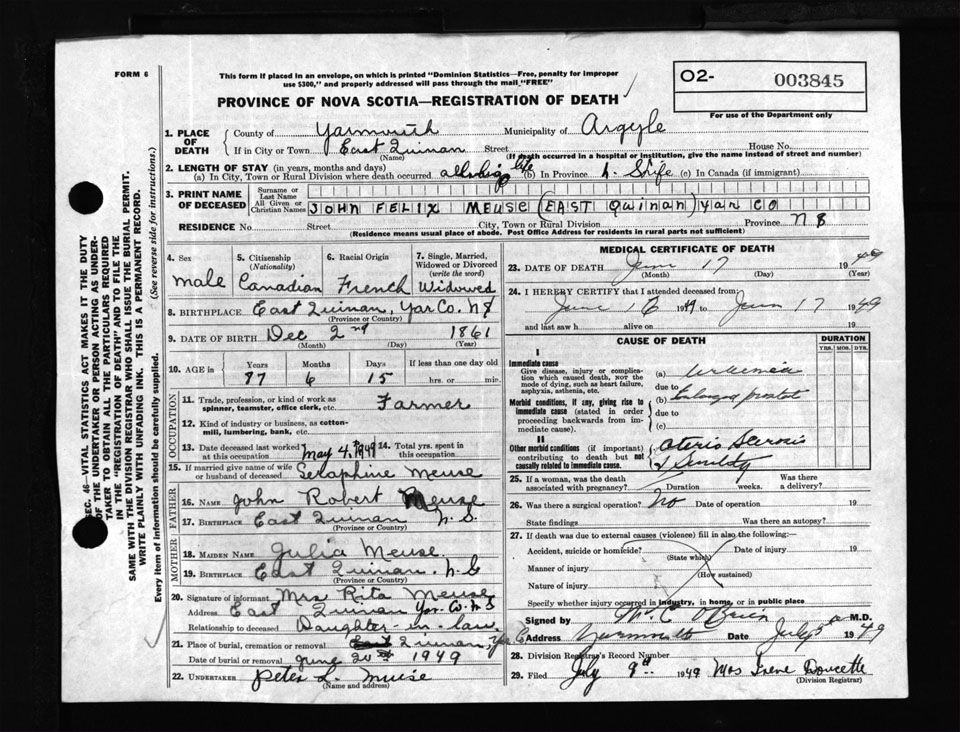 FORM 6
This form if placed in an envelope, on which is printed "Dominion Statistics—Free, penalty for improper
use $300," and properly addressed will pass through the mail "FREE"
02- 003845
For use of the Department only
PROVINCE OF NOVA SCOTIA—REGISTRATION OF DEATH
1. PLACE OF DEATH County of Yarmouth Municipality of Argyle
If in City or Town East Quinan Street House No.
(Name) (If death occurred in a hospital or institution, give the name instead of street and number)
2. LENGTH OF STAY (in years, months and days)
(a) In City, Town or Rural Division where death occurred all his life (b) In Province (c) In Canada (if immigrant)
3. PRINT NAME OF DECEASED
Surname or Last Name
All Given or Christian Names JOHN FELIX MEUSE (EAST QUINAN) YAR CO
RESIDENCE No. Street City, Town or Rural Division Province N S
(Residence means usual place of abode. Post Office Address for residents in rural parts not sufficient)
4. Sex male
5. Citizenship (Nationality) Canadian
6. Racial Origin French
7. Single, Married, Widowed or Divorced (write the word) Widowed
8. BIRTHPLACE East Quinan, Yar Co. N S
(Province or Country)
9. DATE OF BIRTH Dec 2nd 1861
(Month) (Day) (Year)
10. AGE in Years Months Days If less than one day old
87 6 15 hrs. or min.
OCCUPATION
11. Trade, profession, or kind of work as spinner, teamster, office clerk, etc. Farmer
12. Kind of industry or business, as cotton-mill, lumbering, bank, etc.
13. Date deceased last worked at this occupation May 4, 1949 14. Total yrs. spent in this occupation
15. If married give name of wife or husband of deceased Seraphine Meuse
FATHER
16. Name John Robert Meuse
17. BIRTHPLACE East Quinan N. S.
(Province or Country)
MOTHER
18. MAIDEN NAME Julia Meuse
19. BIRTHPLACE East Quinan. N. S
(Province or Country)
20. Signature of informant Mrs Rita Meuse
Address East Quinan Yar. Co. N S
Relationship to deceased Daughter-in-law
21. Place of burial, cremation or removal Quinan, Yar Co
Date of burial or removal June 20 1949
22. UNDERTAKER Peter L. Muise
(Name and address)
MEDICAL CERTIFICATE OF DEATH
23. DATE OF DEATH June 17 1949
(Month) (Day) (Year)
24. I HEREBY CERTIFY that I attended deceased from:
June 16 1949 to June 17 1949
and last saw h alive on 19
CAUSE OF DEATH DURATION
YRS. MOS. DYS.
I
Immediate cause
Give disease, injury or complication which caused death, NOT the mode of dying, such as heart failure, asphyxia, asthenia, etc.
(a) Uraemia
due to
Morbid conditions, if any, giving rise to immediate cause (stated in order proceeding backwards from immediate cause).
(b) Enlarged prostat
due to
(c)
II
Other morbid conditions (if important) contributing to death but not causally related to immediate cause.
& Senility
25. If a woman, was the death associated with pregnancy? Duration weeks. Was there a delivery?
26. Was there a surgical operation? No Date of operation 19
State findings Was there an autopsy?
27. If death was due to external causes (violence) fill in also the following:
Accident, suicide or homicide? Date of injury 19
(State which)
Manner of injury
(How sustained)
Nature of injury
Specify whether injury occurred in industry, in home, or in public place
Signed by O'Brien M.D.
Address Yarmouth Date July 1949
28. Division Registrar's Record Number
29. Filed July 9th 1949 Mrs Irene Doucette
(Division Registrar)
SEC. 46—VITAL STATISTICS ACT MAKES IT THE DUTY
OF THE UNDERTAKER OR PERSON ACTING AS UNDER-
TAKER TO OBTAIN ALL THE PARTICULARS REQUIRED
IN THE "REGISTRATION OF DEATH" AND TO FILE THE
SAME WITH THE DIVISION REGISTRAR WHO SHALL ISSUE THE BURIAL PERMIT.
WRITE PLAINLY WITH UNFADING INK. THIS IS A PERMANENT RECORD.
Every item of information should be carefully supplied. (See reverse side for instructions.)